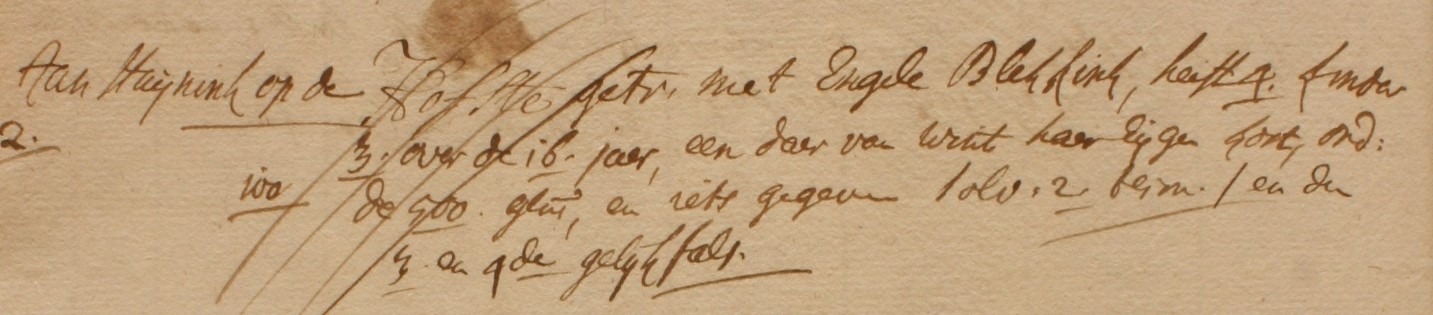 Aan Huynink op de Hofste getr. met Engele Blekkink, heeft 4. kinder
2. 3. over de 16. jaer, een daer van wint haer Eygen kost, ond:
100 de 500. gln, en iets gegeven solv. 2 term. / en den
3 en 4de gelijk fals.